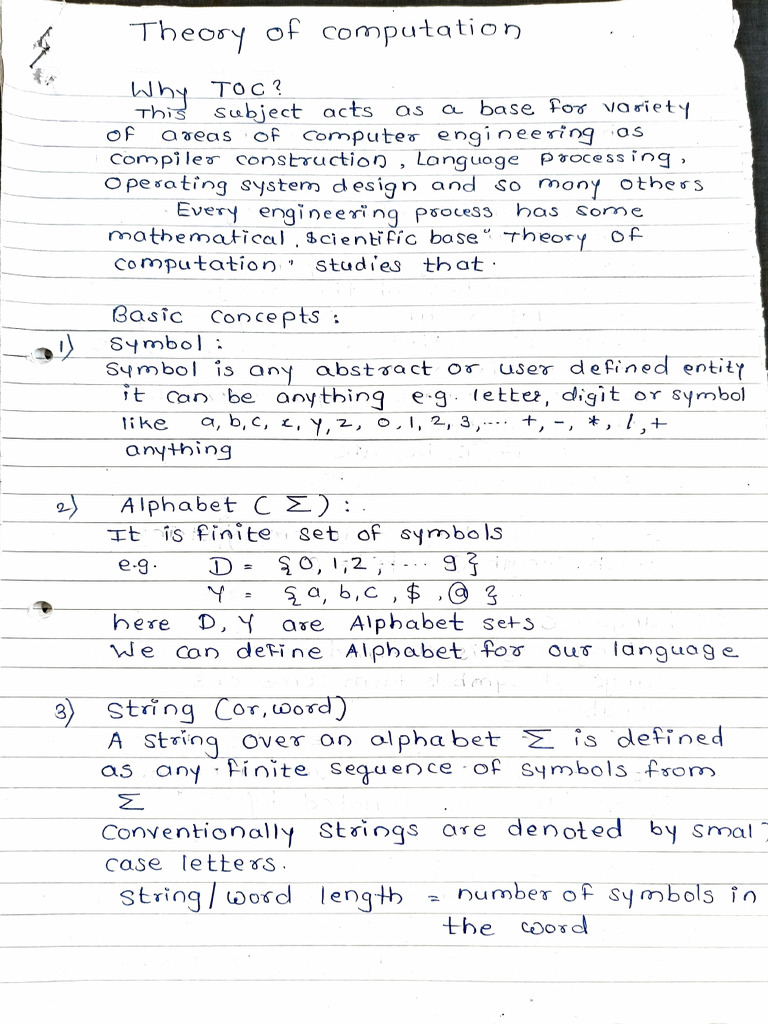 Theory of computation
Why TOC?
This subject acts as a base for variety
of areas of computer engineering as
compiler construction, Language processing,
Operating system design and so many others
Every engineering process has some
mathematical, scientific base "Theory of
computation" studies that.
Basic concepts:
1) Symbol:
Symbol is any abstract or user defined entity
it can be anything e.g. letter, digit or symbol
like a, b, c, x, y, z, 0, 1, 2, 3, .... +, -, *, /, +
anything
2) Alphabet (Σ):
It is finite set of symbols
e.g. D = {0, 1, 2, .... 9}
Y = {a, b, c, $, @}
here D, Y are Alphabet sets
We can define Alphabet for our language
3) String (or, word)
A string over an alphabet Σ is defined
as any finite sequence of symbols from
Σ
Conventionally strings are denoted by small
case letters.
String/word length = number of symbols in
the word